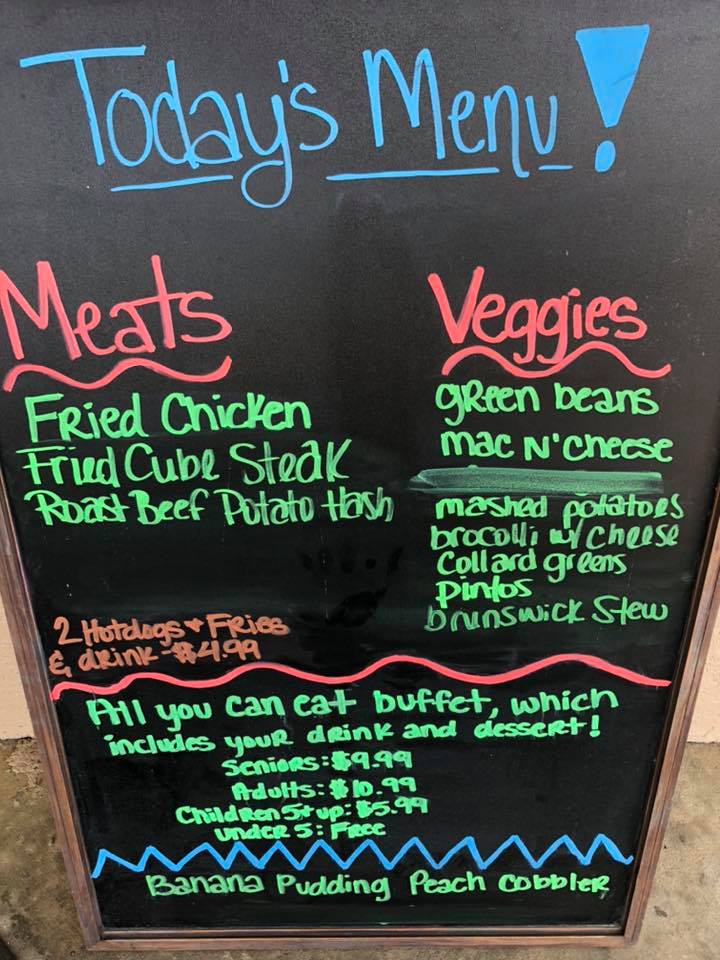 Today's Menu!
Meats
Fried Chicken
Fried Cube Steak
Roast Beef Potato Hash
2 Hotdogs + Fries
& drink - $4.99
Veggies
green beans
mac N' Cheese
mashed potatoes
brocolli w/ cheese
Collard greens
pintos
brunswick Stew
All you can eat buffet, which
includes your drink and dessert!
Seniors: $9.99
Adults: $10.99
Children 5+ up: $5.99
under 5: Free
Banana Pudding Peach Cobbler